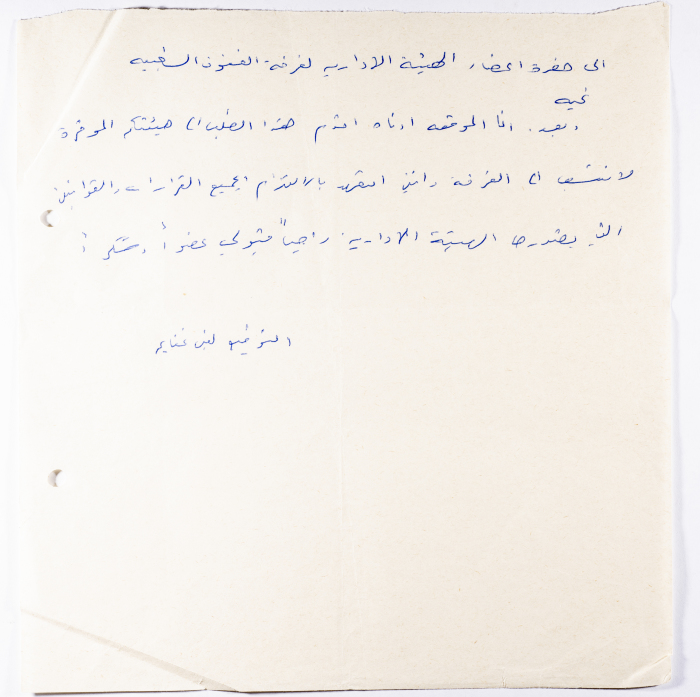 الى حضرة اعضاء الهيئة الادارية لفرقة الفنون الشعبيه
تحيه
وبعد. انا الموقعه ادناه اقدم هذا الطلب الى هيئتكم الموقرة
لانتسب الى الفرقة وانني اتعهد بالالتزام لجميع القرارات والقوانين
التي يصدرها الهيئة الادارية. راجياً قبولي عضواً وشكراً
التوقيع لبنى غنايم